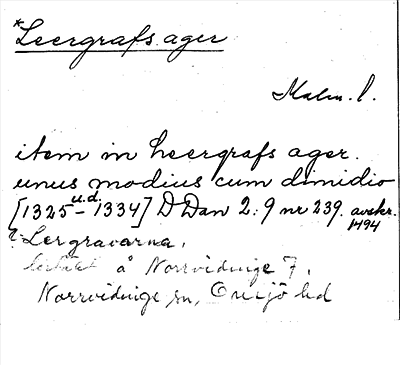 *Leergrafs ager
Malm. l.
item in heergrafs ager.
unus modius cum dimidio
[1325 u.d. - 1334] D Dan 2: 9 nr 239. avskr. 1494
? Lergravarna,
å Norrvidinge 7,
Norrvidinge sn, Onsjö hd